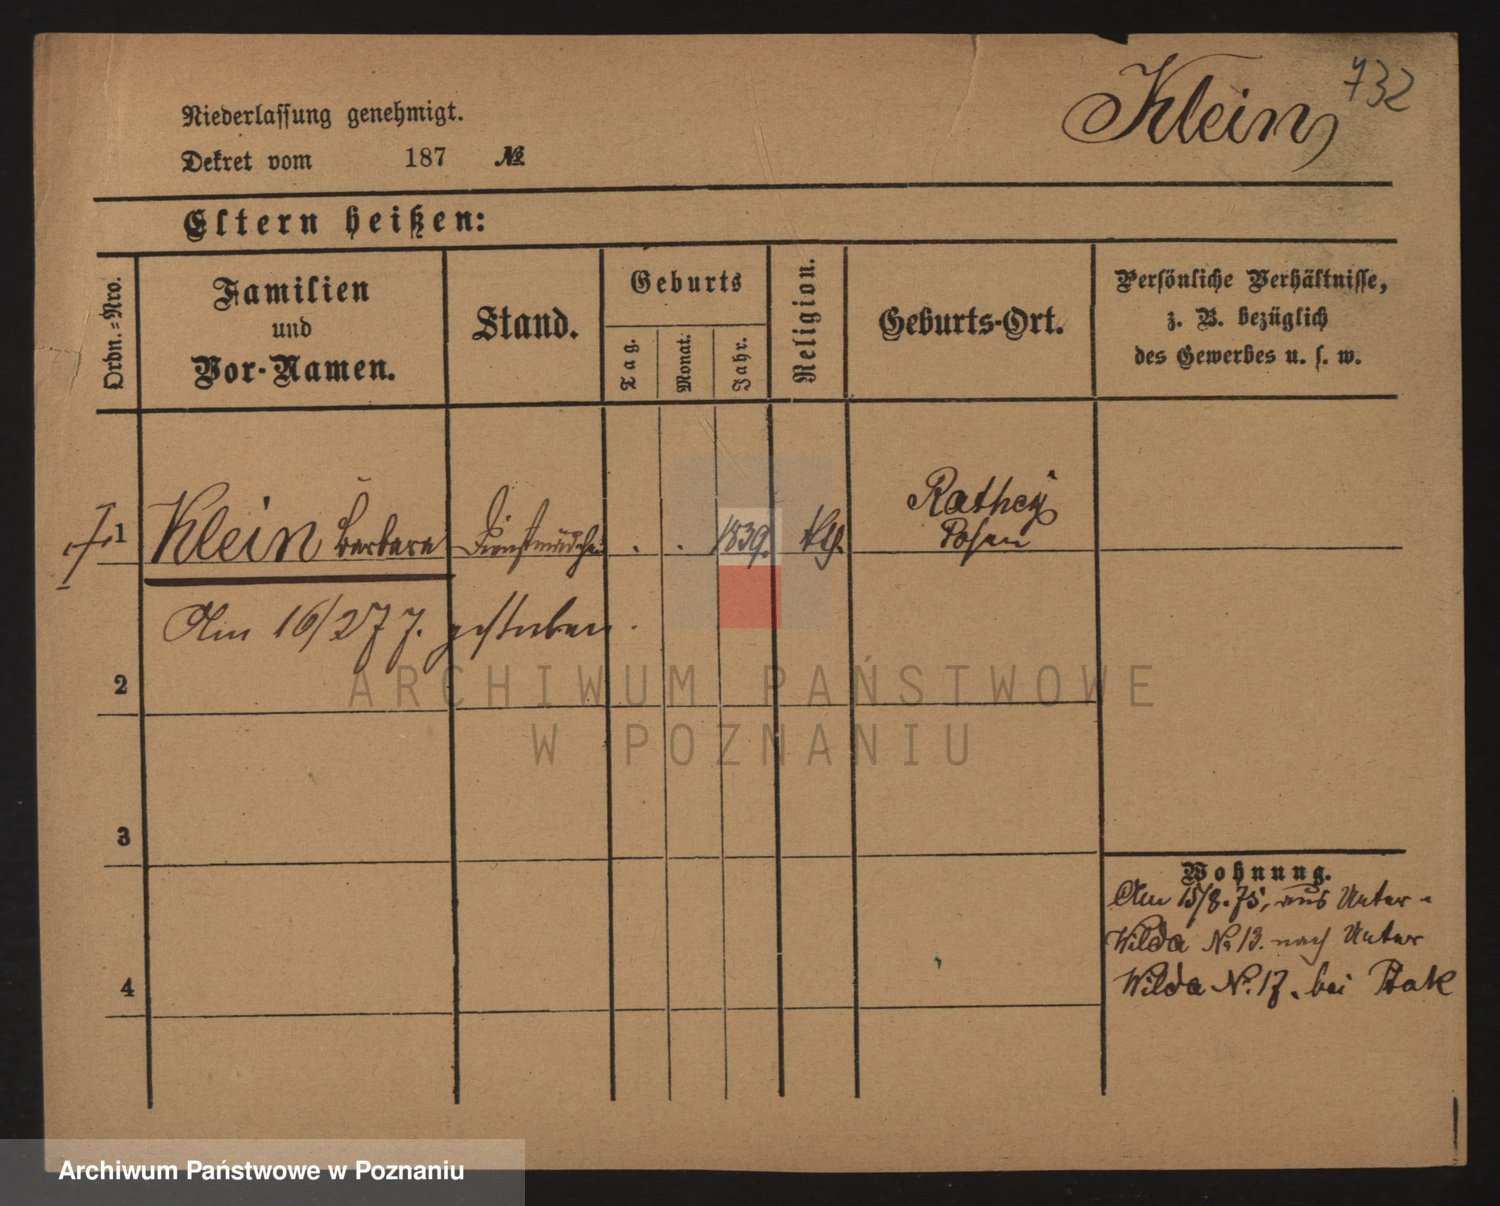 732
Klein
Niederlassung genehmigt.
Dekret vom 187 №
Eltern heißen:
Ordn.-Nro.
Familien
und
Vor-Namen.
Stand.
Geburts
Tag.
Monat.
Jahr.
Religion.
Geburts-Ort.
Persönliche Verhältnisse,
z. B. bezüglich
des Gewerbes u. s. w.
1 Klein Barbara Dienstmädchen . . 1839.
Posen
Am 16/2 77. gestorben.
2
3
4
Wohnung.
Am 15/8.75, aus Unter-
Wilda No 13. nach Unter
Wilda No. 17. bei Ptak
ARCHIWUM PAŃSTWOWE
W POZNANIU
Archiwum Państwowe w Poznaniu